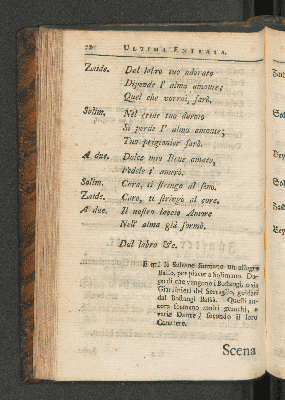 72 ULTIMA ENTRATA.
Zaide. Dal labro tuo adorato
Dipende l' alma amante;
Quel che vorrai, sarò.
Solim. Nel crine tuo dorato
Si perde l' alma amante;
Tuo prigionier sarò.
A due. Dolce mio Bene amato,
Fedele t' amerò.
Solim. Cara, ti stringo al seno.
Zaide. Caro, ti stringo al core.
A due. Il nostro laccio Amore
Nell' alma già formò.
Dal labro &c.
E qui le Sultane formano un allegro
Ballo, per piacer a Solimano. Do-
po di che vengono i Bostangi, o sia
Giardinieri del Serraglio, guidati
dal Bostangi Bassà. Questi an-
cora formano molti giuochi, e
varie Danze, secondo il loro
Carattere.
Scena